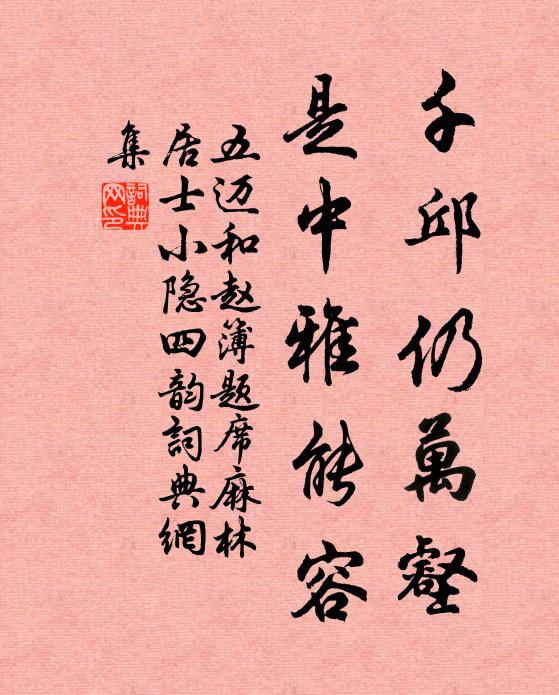 千邱仍萬壑
是中雅能容
五迈和赵簿题席麻林
居士小隐四韵詞典網
集
詞典网印